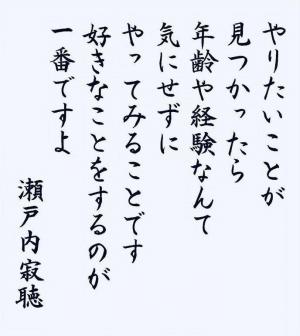 やりたいことが
見つかったら
年齢や経験なんて
気にせずに
やってみることです
好きなことをするのが
一番ですよ
瀬戸内寂聴